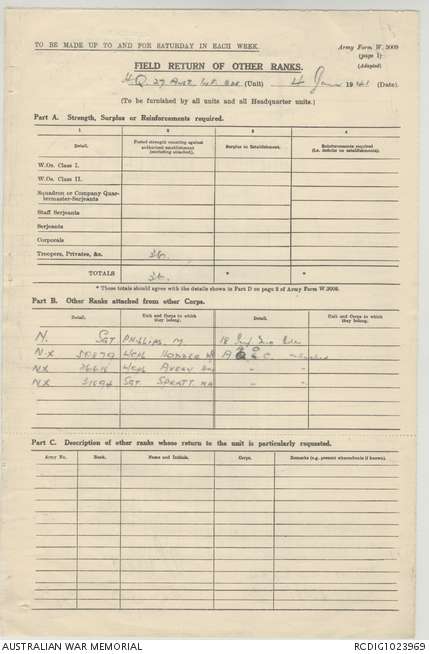 TO BE MADE UP TO AND FOR SATURDAY IN EACH WEEK.
Army Form W. 3009
(page 1)
(Adapted)
FIELD RETURN OF OTHER RANKS.
H Q 27 Aust Inf Bde (Unit) 4 1941 (Date).
(To be furnished by all units and all Headquarter units.)
Part A. Strength, Surplus or Reinforcements required.
1 2 3 4
Detail. Posted strength counting against authorized establishment (excluding attached). Surplus to Establishment. Reinforcements required (i.e. deficits on establishments).
W.Os. Class I.
W.Os. Class II.
Squadron or Company Quartermaster-Serjeants
Staff Serjeants
Serjeants
Corporals
Troopers, Privates, &c.
TOTALS * *
* These totals should agree with the details shown in Part D on page 2 of Army Form W.3009.
Part B. Other Ranks attached from other Corps.
Detail. Unit and Corps to which they belong. Detail. Unit and Corps to which they belong.
N. Sgt PHILLIPS M.
NX HODDER
NX
NX Sgt SPRATT
Part C. Description of other ranks whose return to the unit is particularly requested.
Army No. Rank. Name and Initials. Corps. Remarks (e.g. present whereabouts if known).
AUSTRALIAN WAR MEMORIAL
RCDIG1023969